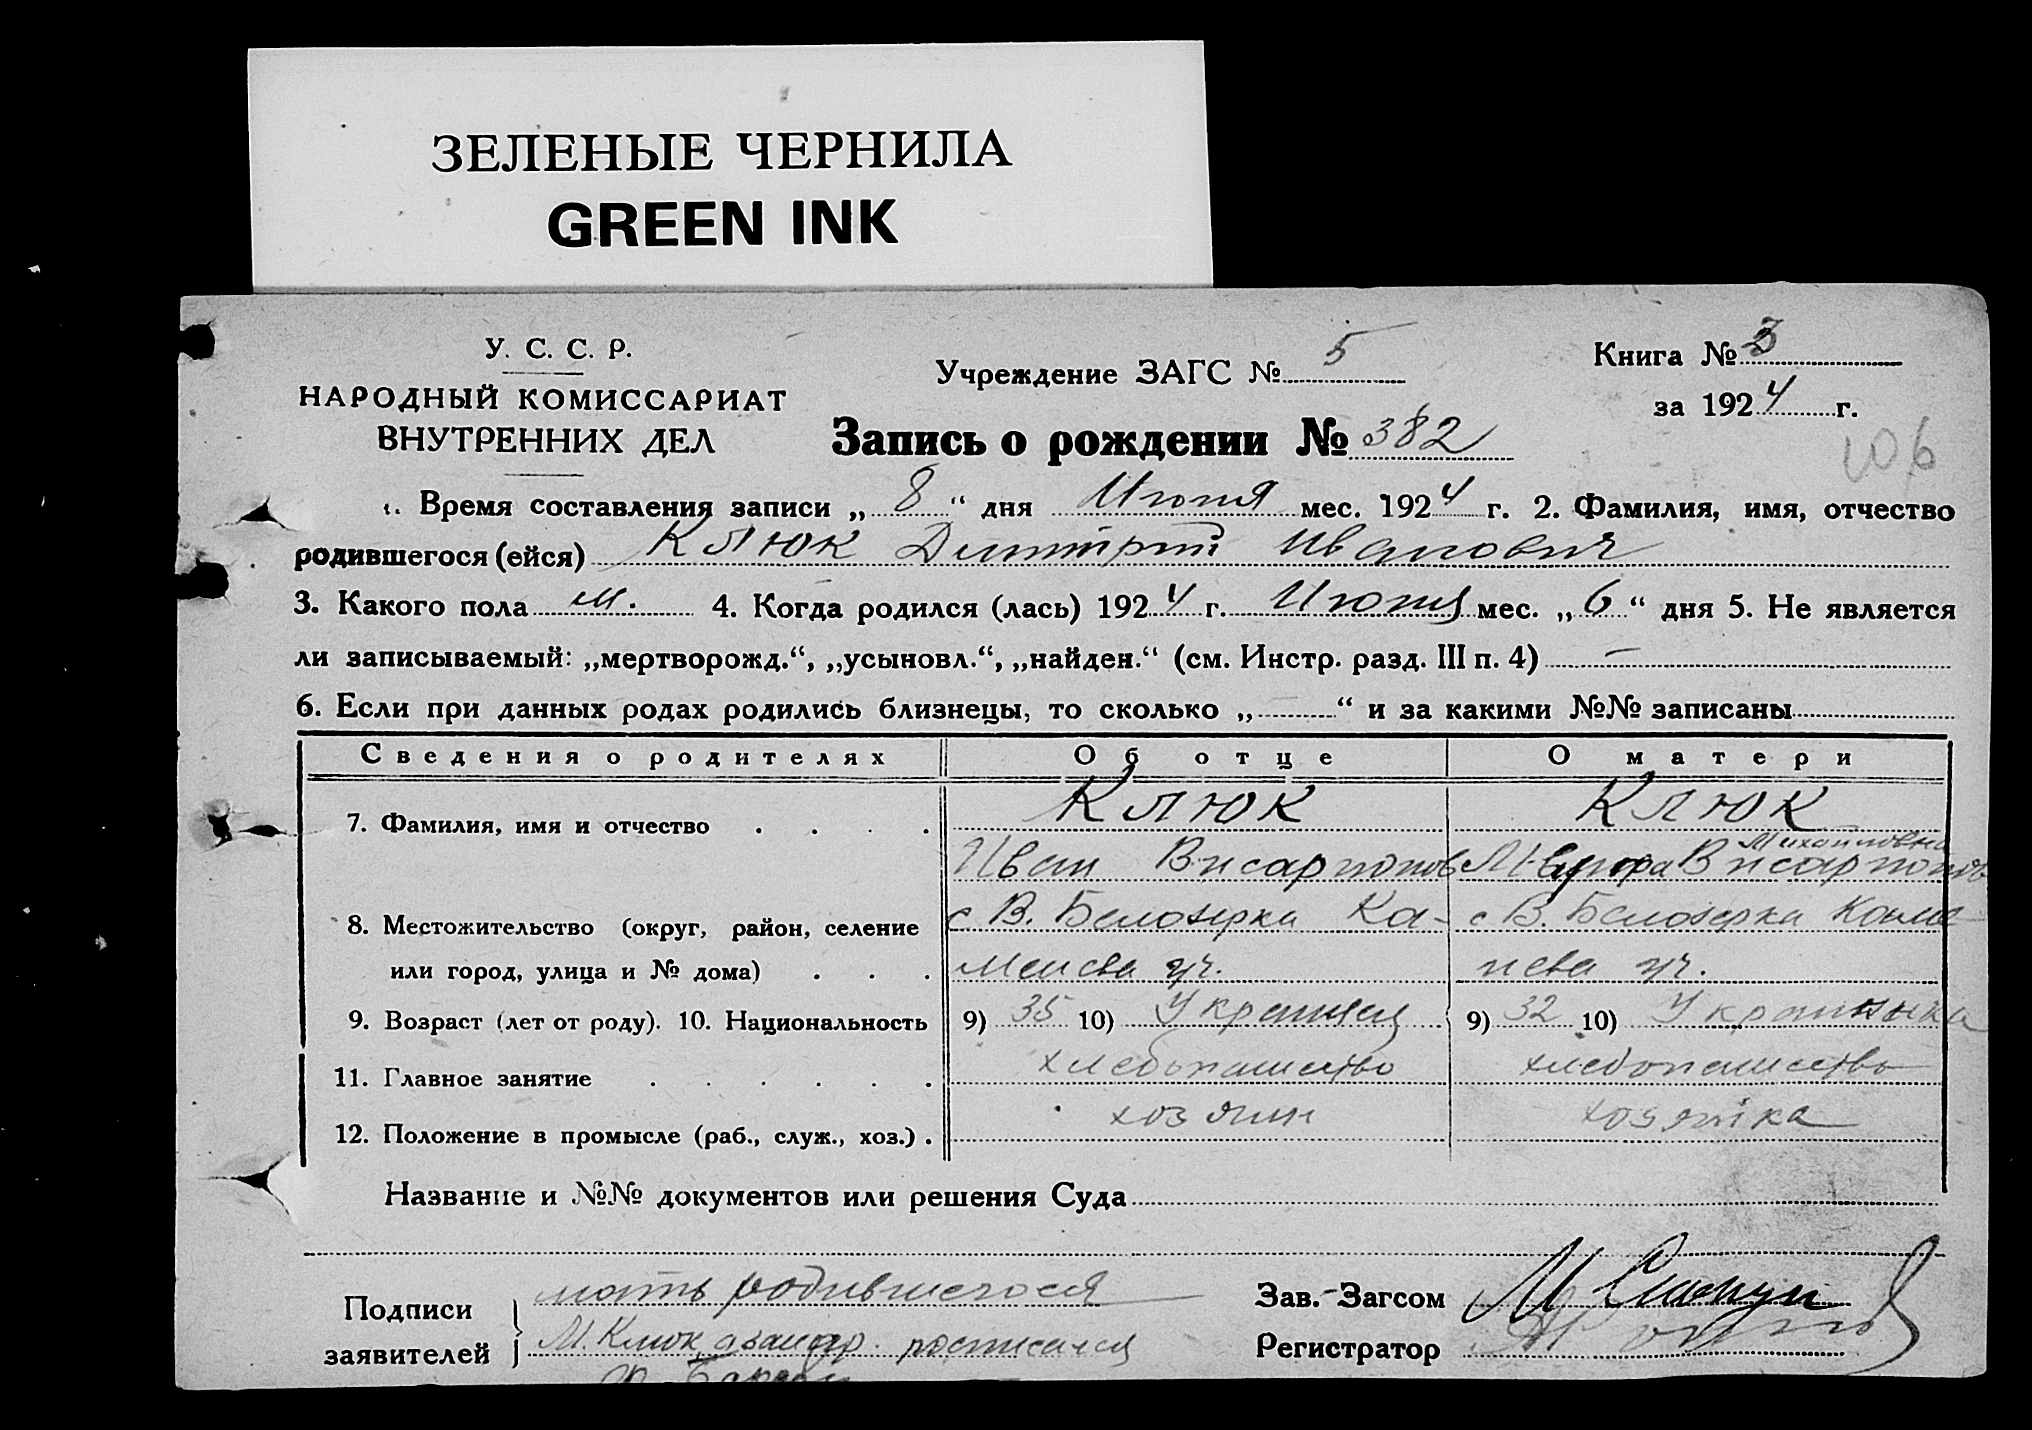 ЗЕЛЕНЫЕ ЧЕРНИЛА
GREEN INK
У. С. С. Р.
НАРОДНЫЙ КОМИССАРИАТ
ВНУТРЕННИХ ДЕЛ
Учреждение ЗАГС № 5
Книга № 3
за 1924 г.
Запись о рождении № 382
106
1. Время составления записи „ 8 “ дня Июня мес. 1924 г. 2. Фамилия, имя, отчество
родившегося (ейся) Клюк Димитрий Иванович
3. Какого пола м. 4. Когда родился (лась) 1924 г. Июня мес. „ 6 “ дня 5. Не является
ли записываемый: „мертворожд.“, „усыновл.“, „найден.“ (см. Инстр. разд. III п. 4) —
6. Если при данных родах родились близнецы, то сколько „ “ и за какими №№ записаны
Сведения о родителях Об отце О матери
7. Фамилия, имя и отчество Клюк Клюк
Михайловна
Иван Висарионов
8. Местожительство (округ, район, селение с В. Белозерка Ка- с В. Белозерка Каме-
или город, улица и № дома) менева уч. нева уч.
9. Возраст (лет от роду). 10. Национальность 9) 35 10) Украинец 9) 32 10) Украинка
11. Главное занятие хлебопашество хлебопашество
12. Положение в промысле (раб., служ., хоз.) хозяин хозяйка
Название и №№ документов или решения Суда
Подписи
заявителей
мать родившегося
М. Клюк расписался
Зав.-Загсом
Регистратор